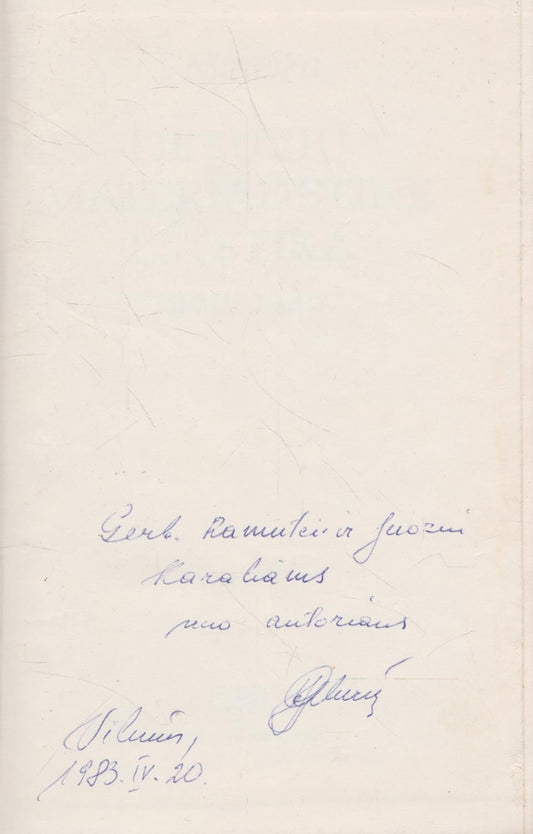 Gerb. Ramutei ir Juozui
Karaliams
nuo autoriaus
Vilnius,
1983.IV.20.